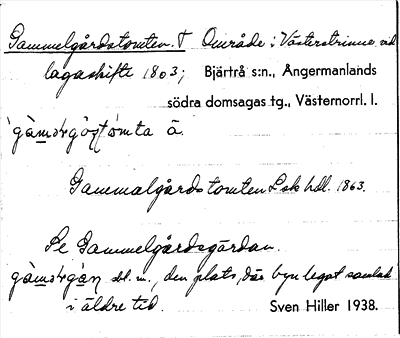 Gammelgårdstomten. † Område i Västerstrinne vid
lagaskifte 1803; Bjärtrå s:n., Ångermanlands
södra domsagas tg., Västernorrl. l.
Gammalgårdstomten Lsk hdl. 1863.
Se Gammelgårdsgärdan.
sbl. m., den plats, där byn legat samlad
i äldre tid. Sven Hiller 1938.